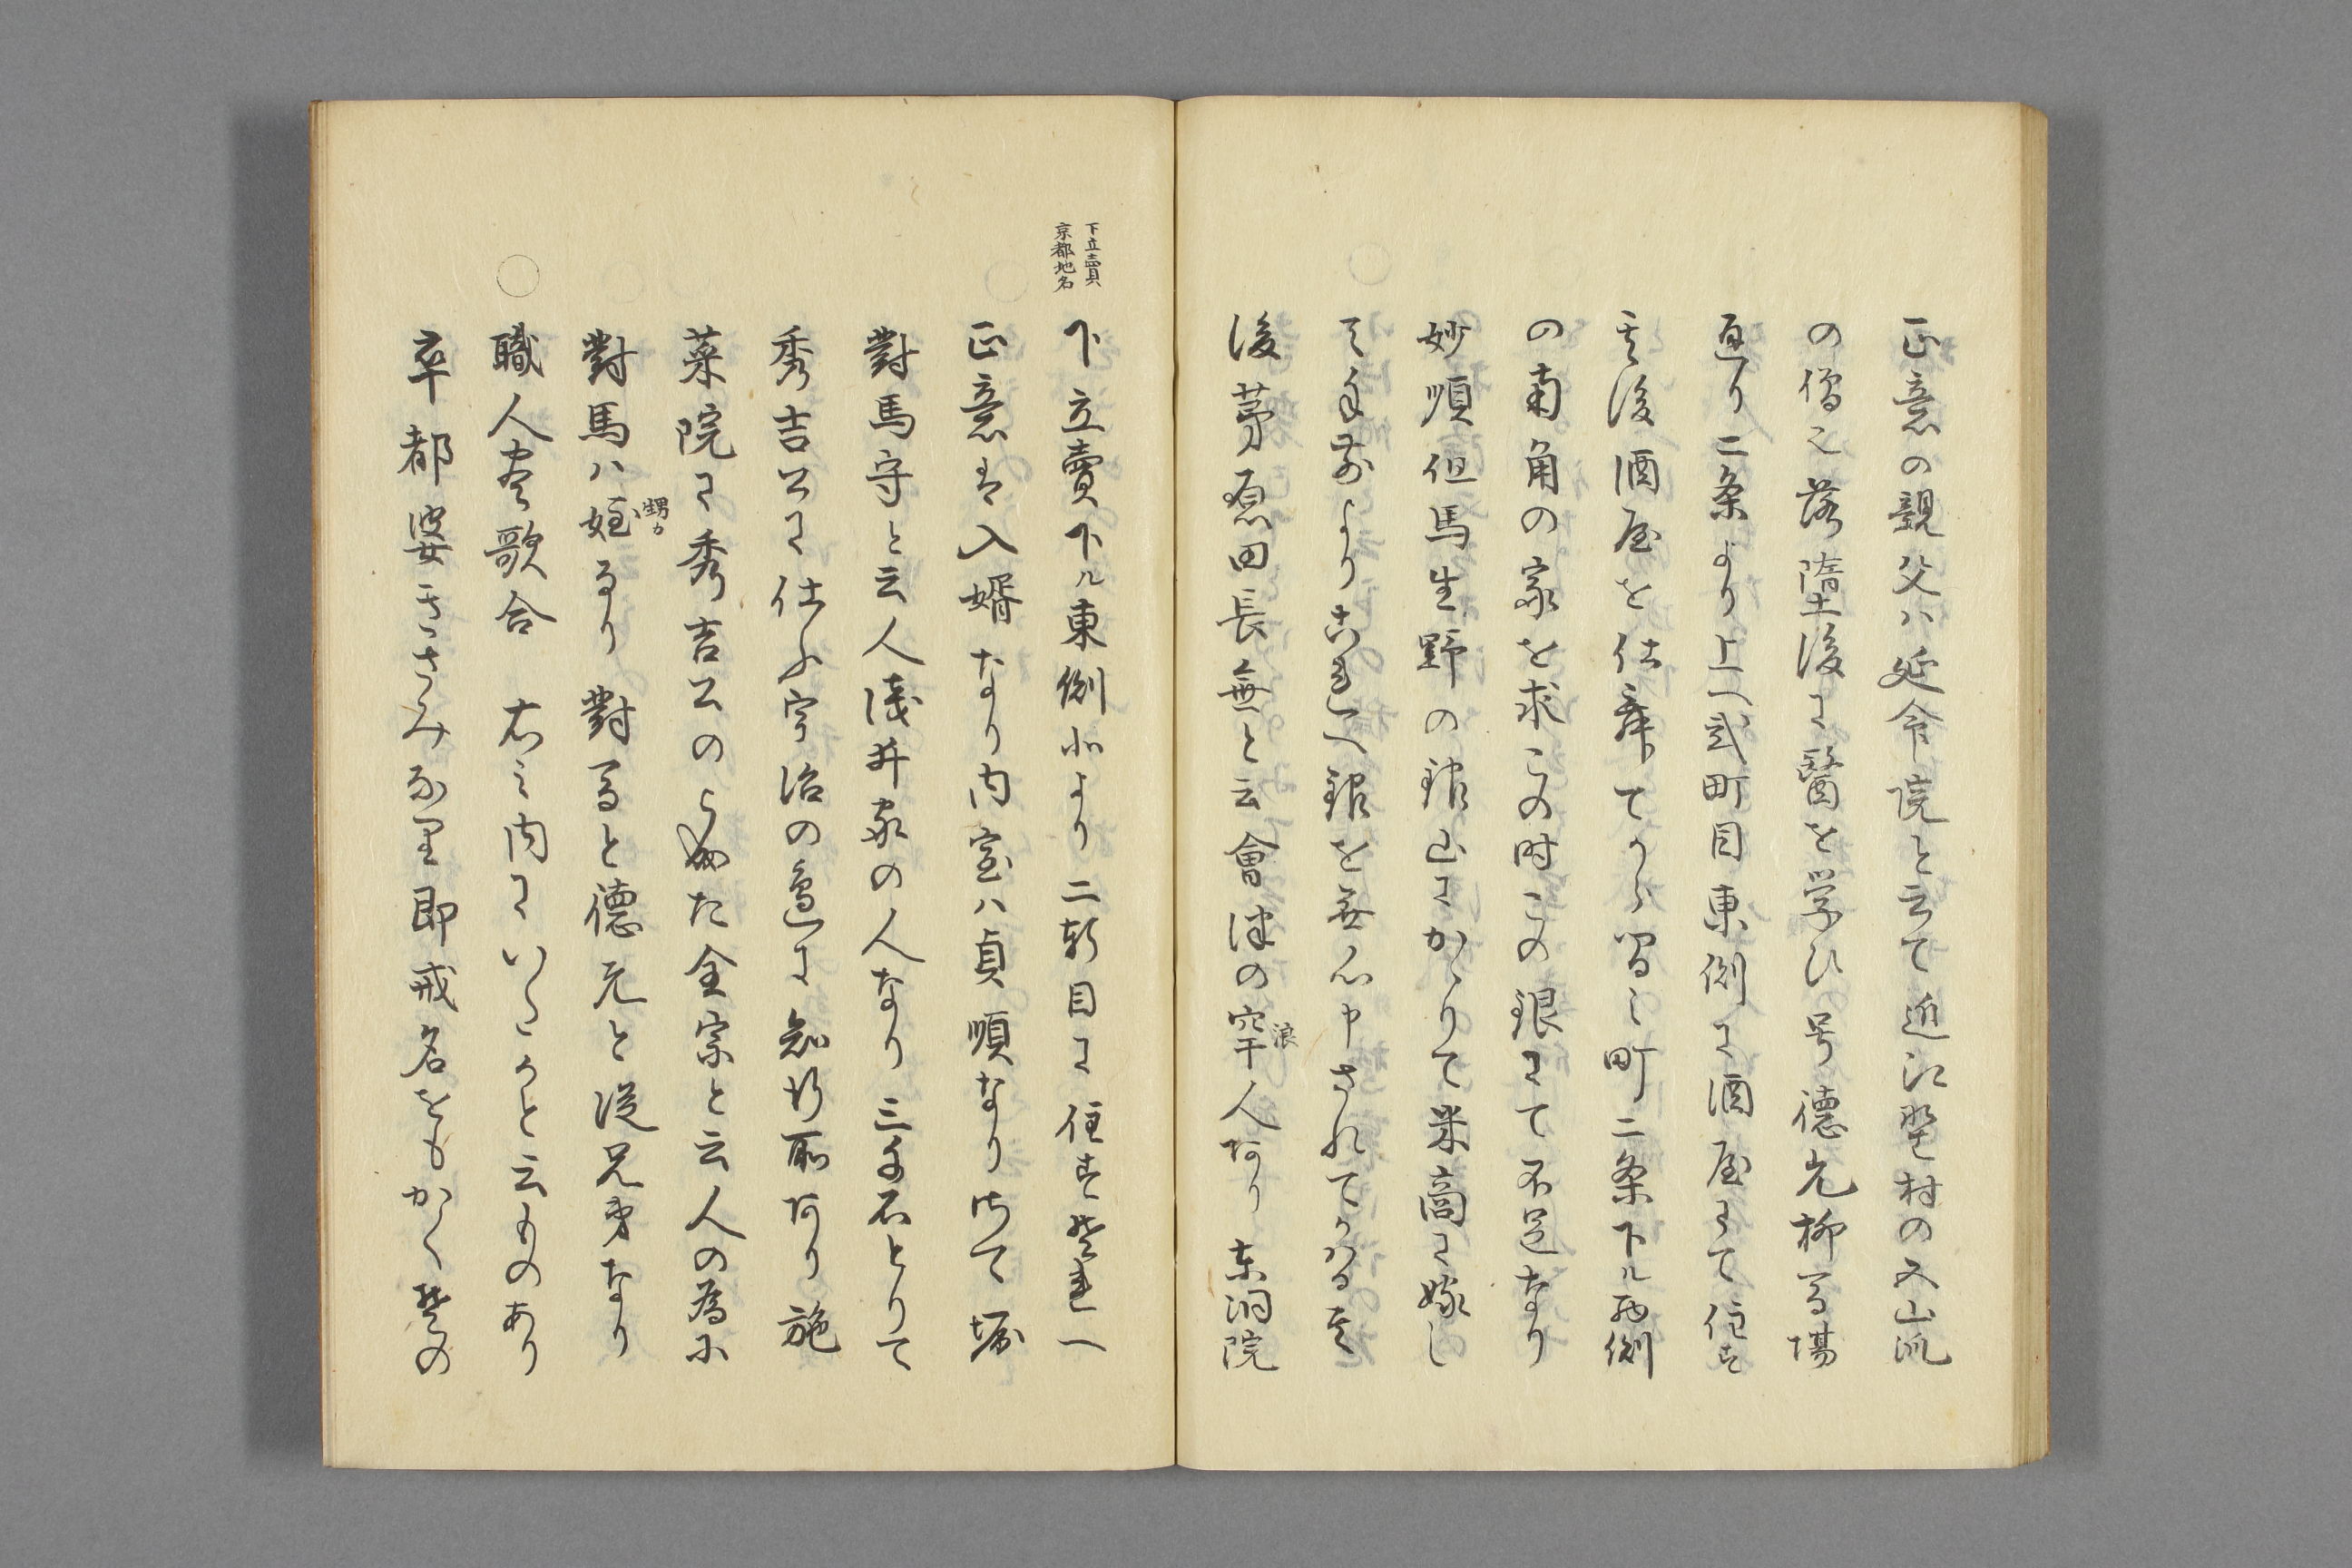 正意の親父ハ延命院と云て近江野村の又山派
の僧也落墮後に醫を学ひ号徳元柳馬場
通り二条より上へ弐町目東側に酒屋にて住す
其後酒屋を仕舞てから間之町二条下ル西側
の南角の家を求この時この銀にて不足なり
妙順但馬生野の銀山にかゝりて米商に嫁し
て手前よりこれへ銀を無心申されてかはる其
後茅原田長無と云會津の窂人あり東洞院
浪
下立賣
京都地名
下立賣下ル東側北より二軒目に住すそれへ
正意は入婿なり内室ハ貞順なりさて堀
對馬守と云人浅井家の人なり三千石とりて
秀吉公に仕ふ宇治の邊に知行所あり施
薬院に秀吉公のらめた全宗と云人の為に
對馬ハ姪なり 對馬と徳元と従兄弟なり
甥カ
○
職人盡歌合 右之内にいたかと云ものあり
卒都婆きさみな里即戒名をもかくその